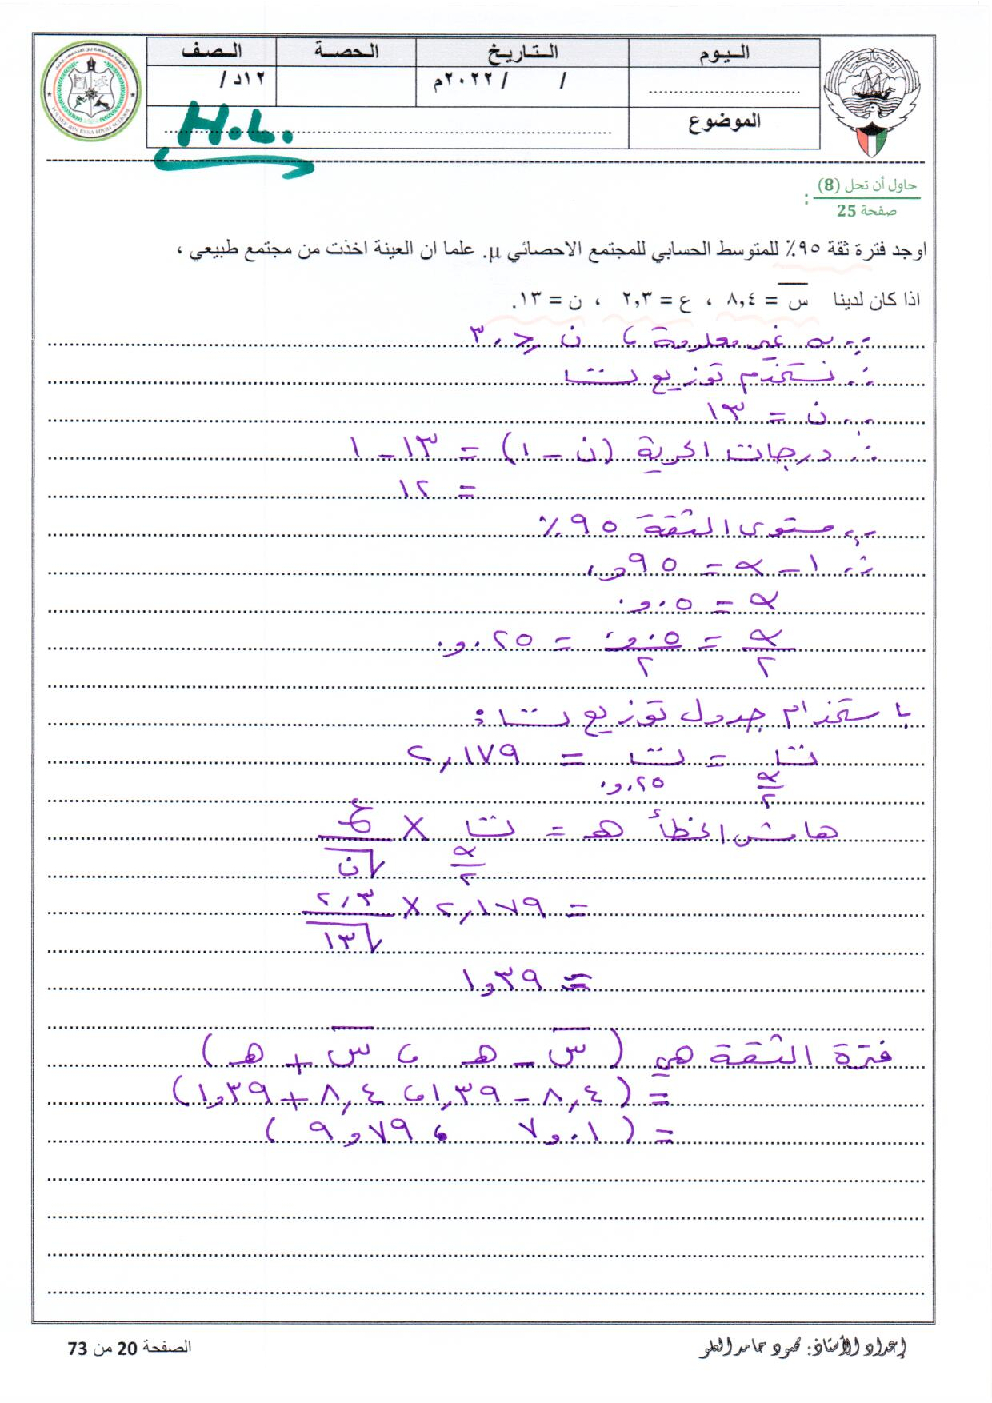 اليوم التاريخ الحصة الصف
/ / ٢٠٢٢م ١٢د/
الموضوع H.L.
حاول أن تحل (8)
صفحة 25 :
اوجد فترة ثقة ٩٥٪ للمتوسط الحسابي للمجتمع الاحصائي µ. علما ان العينة اخذت من مجتمع طبيعي ،
اذا كان لدينا س̅ = ٨,٤ ، ع = ٢,٣ ، ن = ١٣.
∵ σ غير معلومة ، ن ≤ ٣٠
∴ نستخدم توزيع ت
∵ ن = ١٣
∴ درجات الحرية (ن - ١) = ١٣ - ١
= ١٢
∵ مستوى الثقة ٩٥٪
∴ ١ - α = ٠,٩٥
α = ٠,٠٥
α/٢ = ٠,٠٥/٢ = ٠,٠٢٥
باستخدام جدول توزيع ت :
ت α/٢ = ت ٠,٠٢٥ = ٢,١٧٩
هامش الخطأ هـ = ت α/٢ × ع/√ن
= ٢,١٧٩ × ٢,٣/√١٣
= ١,٣٩
فترة الثقة هي (س̅ - هـ ، س̅ + هـ)
= (٨,٤ - ١,٣٩ ، ٨,٤ + ١,٣٩)
= (٧,٠١ ، ٩,٧٩)
إعداد الأستاذ: محمود حامد
الصفحة 20 من 73